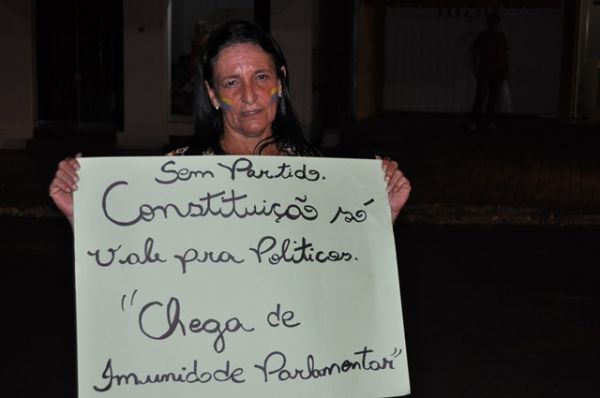 Sem Partido.
Constituição só
Vale pra Politicos.
"Chega de
Imunidade Parlamentar"